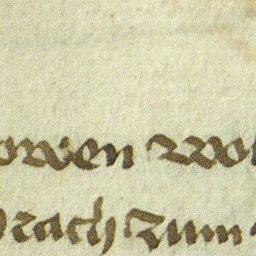 owen wol
rach zum